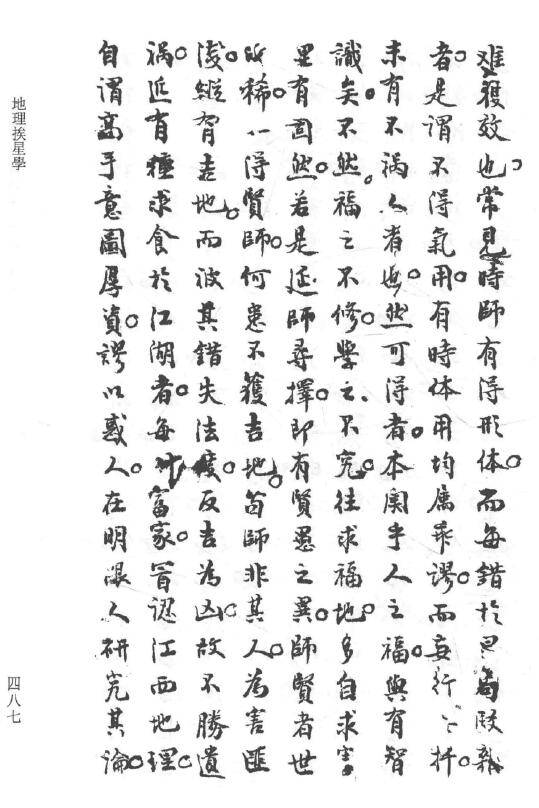 难獲效也常見時師有得形体而每錯於
者是謂不得氣用有時体用均属乖謬而妄行
未有不禍人者也然可得者本関乎人之福與有智
識矣不然福之不修學之不究往求福地多自求害
里有固然若是延師尋擇即有賢愚之異師賢者世
所稀得賢師何患不獲吉地苟師非其人為害匪
浅縱有吉地而被其錯失法度反吉為凶故不勝遺
禍近有種求食於江湖者每富家冒認江西地理
自謂高手意圖厚資謬以惑人在明眼人研究其論
地理挨星學
四八七